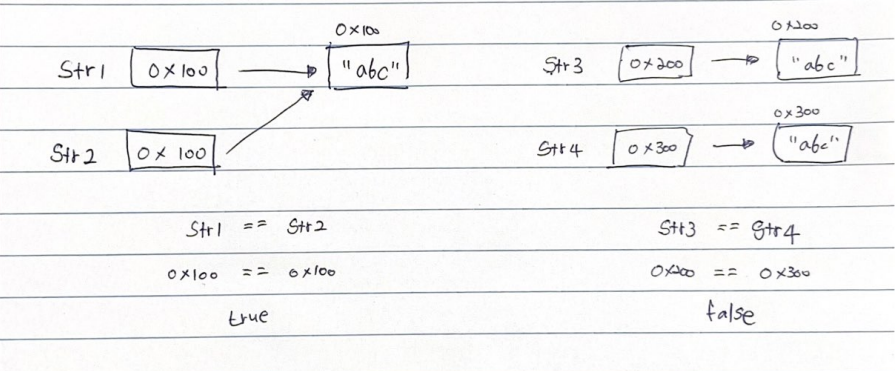 0x100
Str1 0x100 "abc"
Str2 0x100
0x200
Str3 0x200 "abc"
0x300
Str4 0x300 "abc"
Str1 == Str2
0x100 == 0x100
true
Str3 == Str4
0x200 == 0x300
false